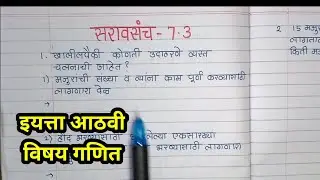 सरावसंच - 7.3
1. खालीलपैकी कोणती उदाहरणे व्यस्त
चलनाची आहेत?
1) मजुरांची संख्या व त्यांना काम पूर्ण करण्यासाठी
लागणारा वेळ
→
2) हौद भरण्यासाठी
एकसारख्या
भरण्यासाठी लागणारा
→
2 15 मजुर
किती मज
इयत्ता आठवी
विषय गणित